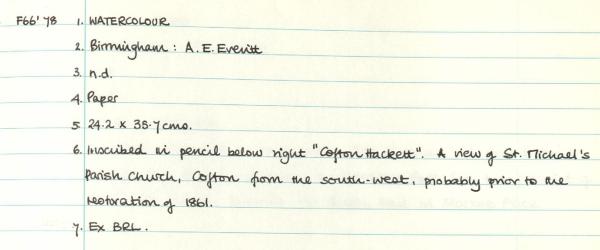 F66'78 1. WATERCOLOUR
2. Birmingham : A.E. Everitt
3. n.d.
4. Paper
5. 24.2 x 35.7 cms.
6. Inscribed in pencil below right "Cofton Hackett". A view of St. Michael's
Parish Church, Cofton from the south-west, probably prior to the
restoration of 1861.
7. Ex BRL.